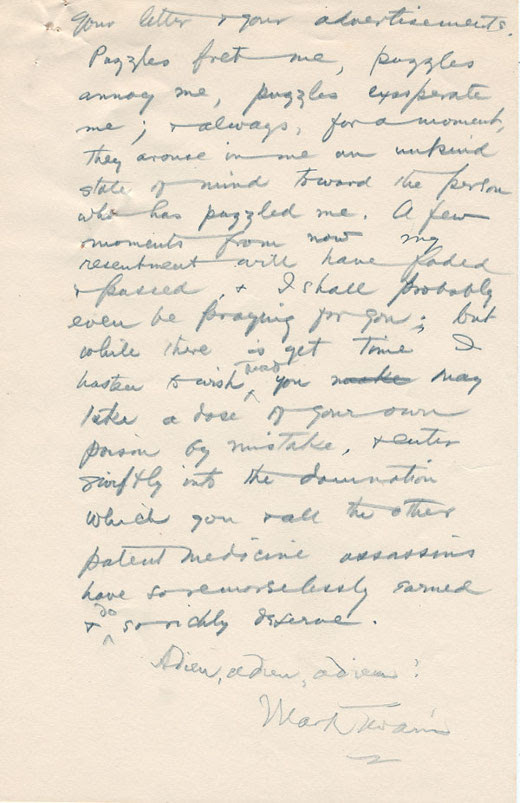 Your letter & your advertisements.
Puzzles fret me, puzzles
annoy me, puzzles exasperate
me; & always, for a moment,
they arouse in me an unkind
state of mind toward the person
who has puzzled me. A few
moments from now my
resentment will have faded
& passed, & I shall probably
even be praying for you; but
while there is yet time I
hasten to wish that you make may
take a dose of your own
poison by mistake, & enter
swiftly into the damnation
which you & all the other
patent medicine assassins
have so remorselessly earned
& do so richly deserve.
Adieu, adieu, adieu!
Mark Twain